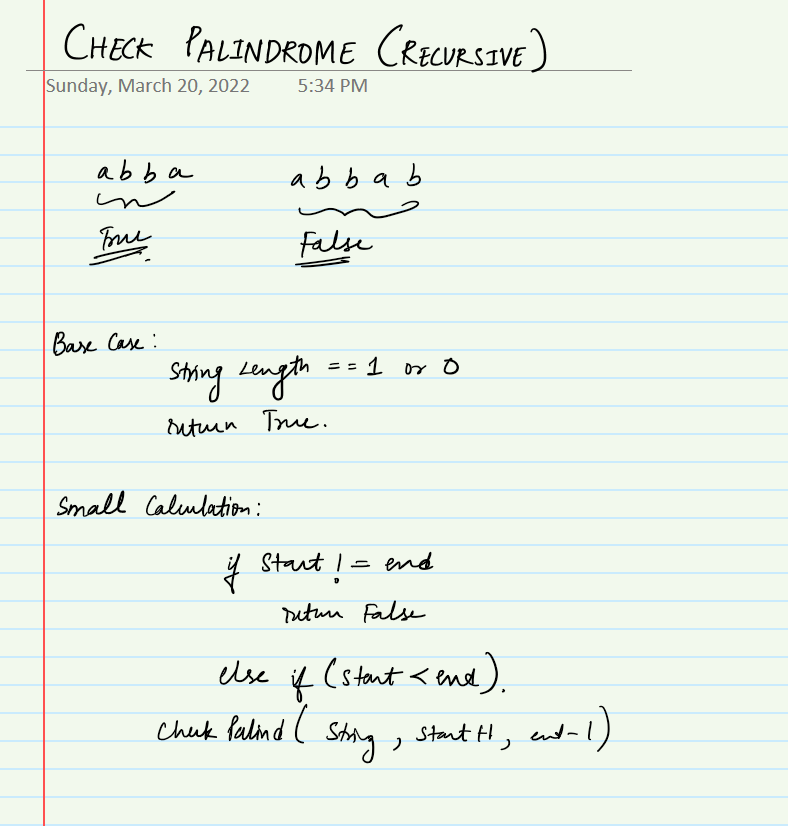 CHECK PALINDROME (RECURSIVE)
Sunday, March 20, 2022 5:34 PM
abba abbab
True False
Base Case:
String Length == 1 or 0
return True.
Small Calculation:
if Start != end
return False
else if (start < end).
Check Palind ( String, start+1, end-1)